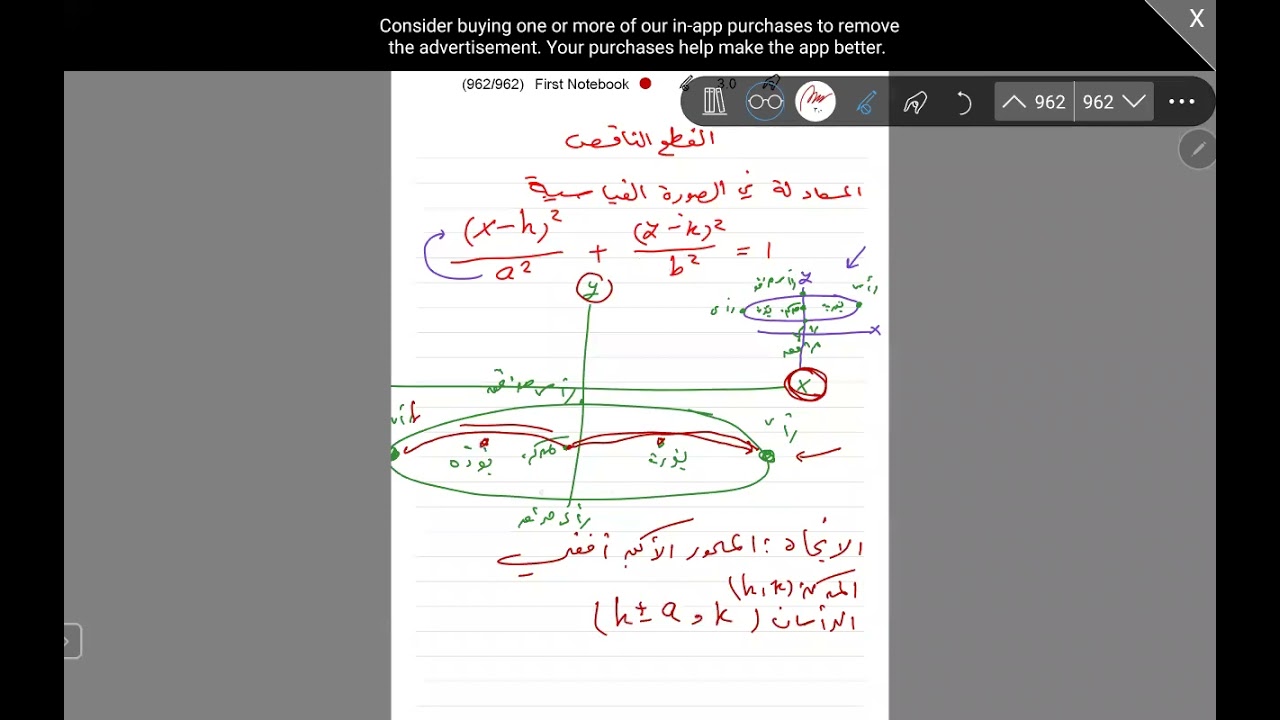 Consider buying one or more of our in-app purchases to remove
the advertisement. Your purchases help make the app better.
X
(962/962) First Notebook
3.0
962 962
القطع الناقص
المعادلة في الصورة القياسية
(x-h)² / a² + (y-k)² / b² = 1
y
x
رأس مرافق
رأس
بؤرة
مركز
بؤرة
رأس
رأس مرافق
y
x
رأس مرافق
رأس
رأس
بؤرة
المركز
بؤرة
رأس مرافق
الاتجاه: المحور الأكبر أفقي
المركز: (h, k)
الرأسان (h ± a, k)